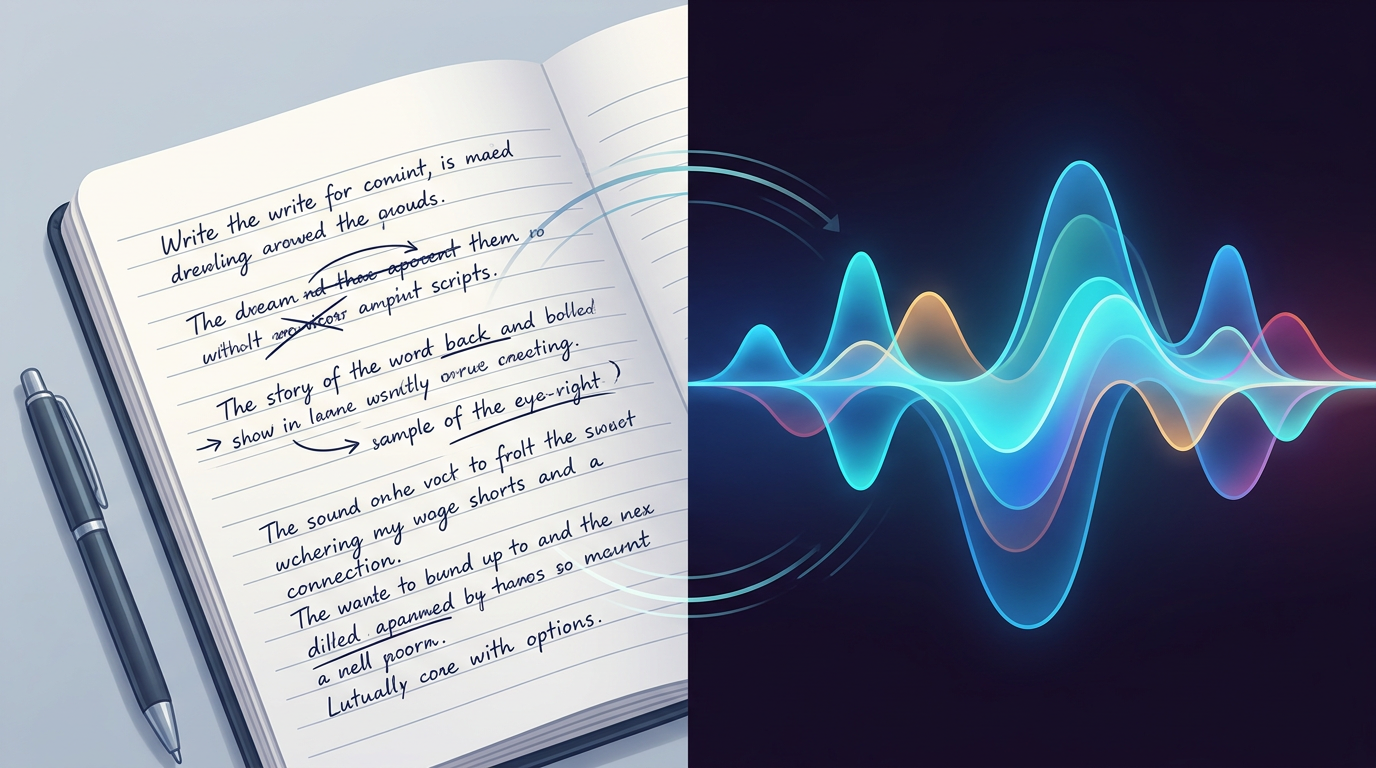 Write the write for comint, is maed
drevling arowed the gouds.
The dream them ro
witholt ampint scripts.
The story of the word back and bolled
→ show in leane wsnitly creeting.
→ sample of the eye-right )
The sound onhe voct to frolt the sweet
wchering my wage shorts and a
connection.
The wante to bund up to and the nex
dilled apanmed by hanos so meunt
a nell poorm.
Lutually core with options.